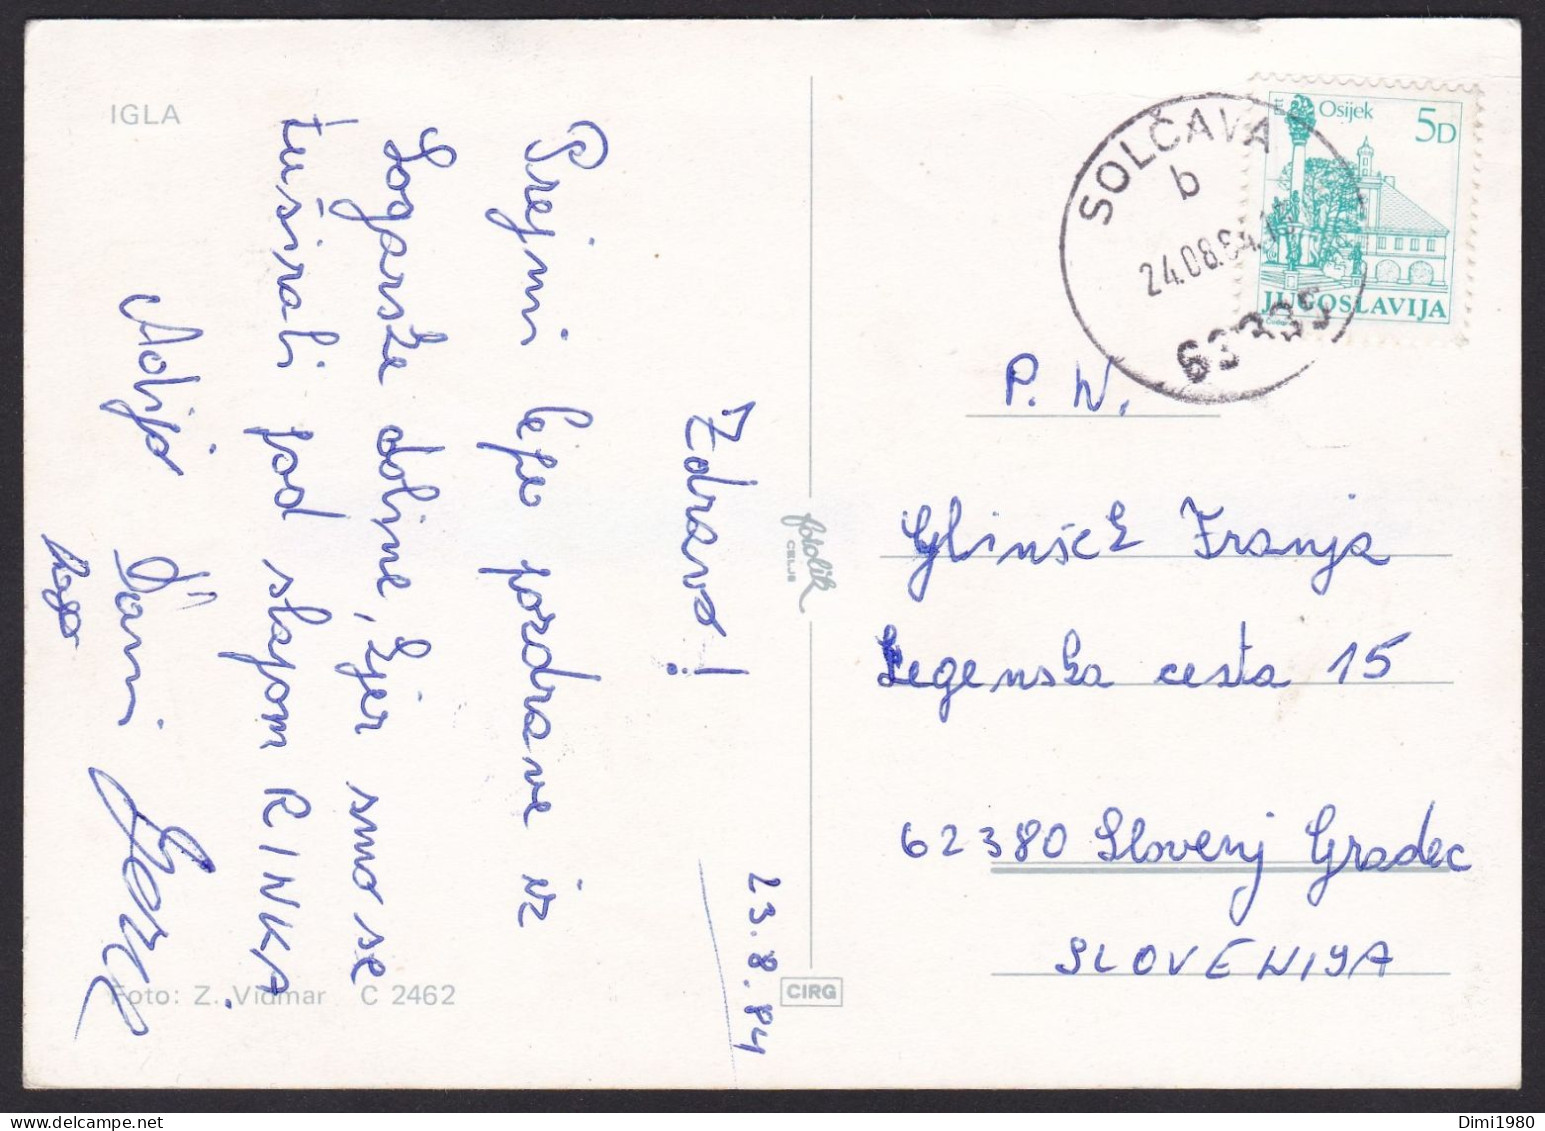 IGLA
23.8.84
Zdravo!
Prejmi lepe pozdrave iz
Logarske doline, kjer smo se
tuširali pod slapom RINKA.
Adijo
Foto: Z. Vidmar C 2462
fotolik
CELJE
CIRG
SOLČAVA
b
24.08.84
63335
Osijek
5D
JUGOSLAVIJA
P. N.
Glinšek Franja
Legenska cesta 15
62380 Slovenj Gradec
SLOVENIJA
Dimi1980